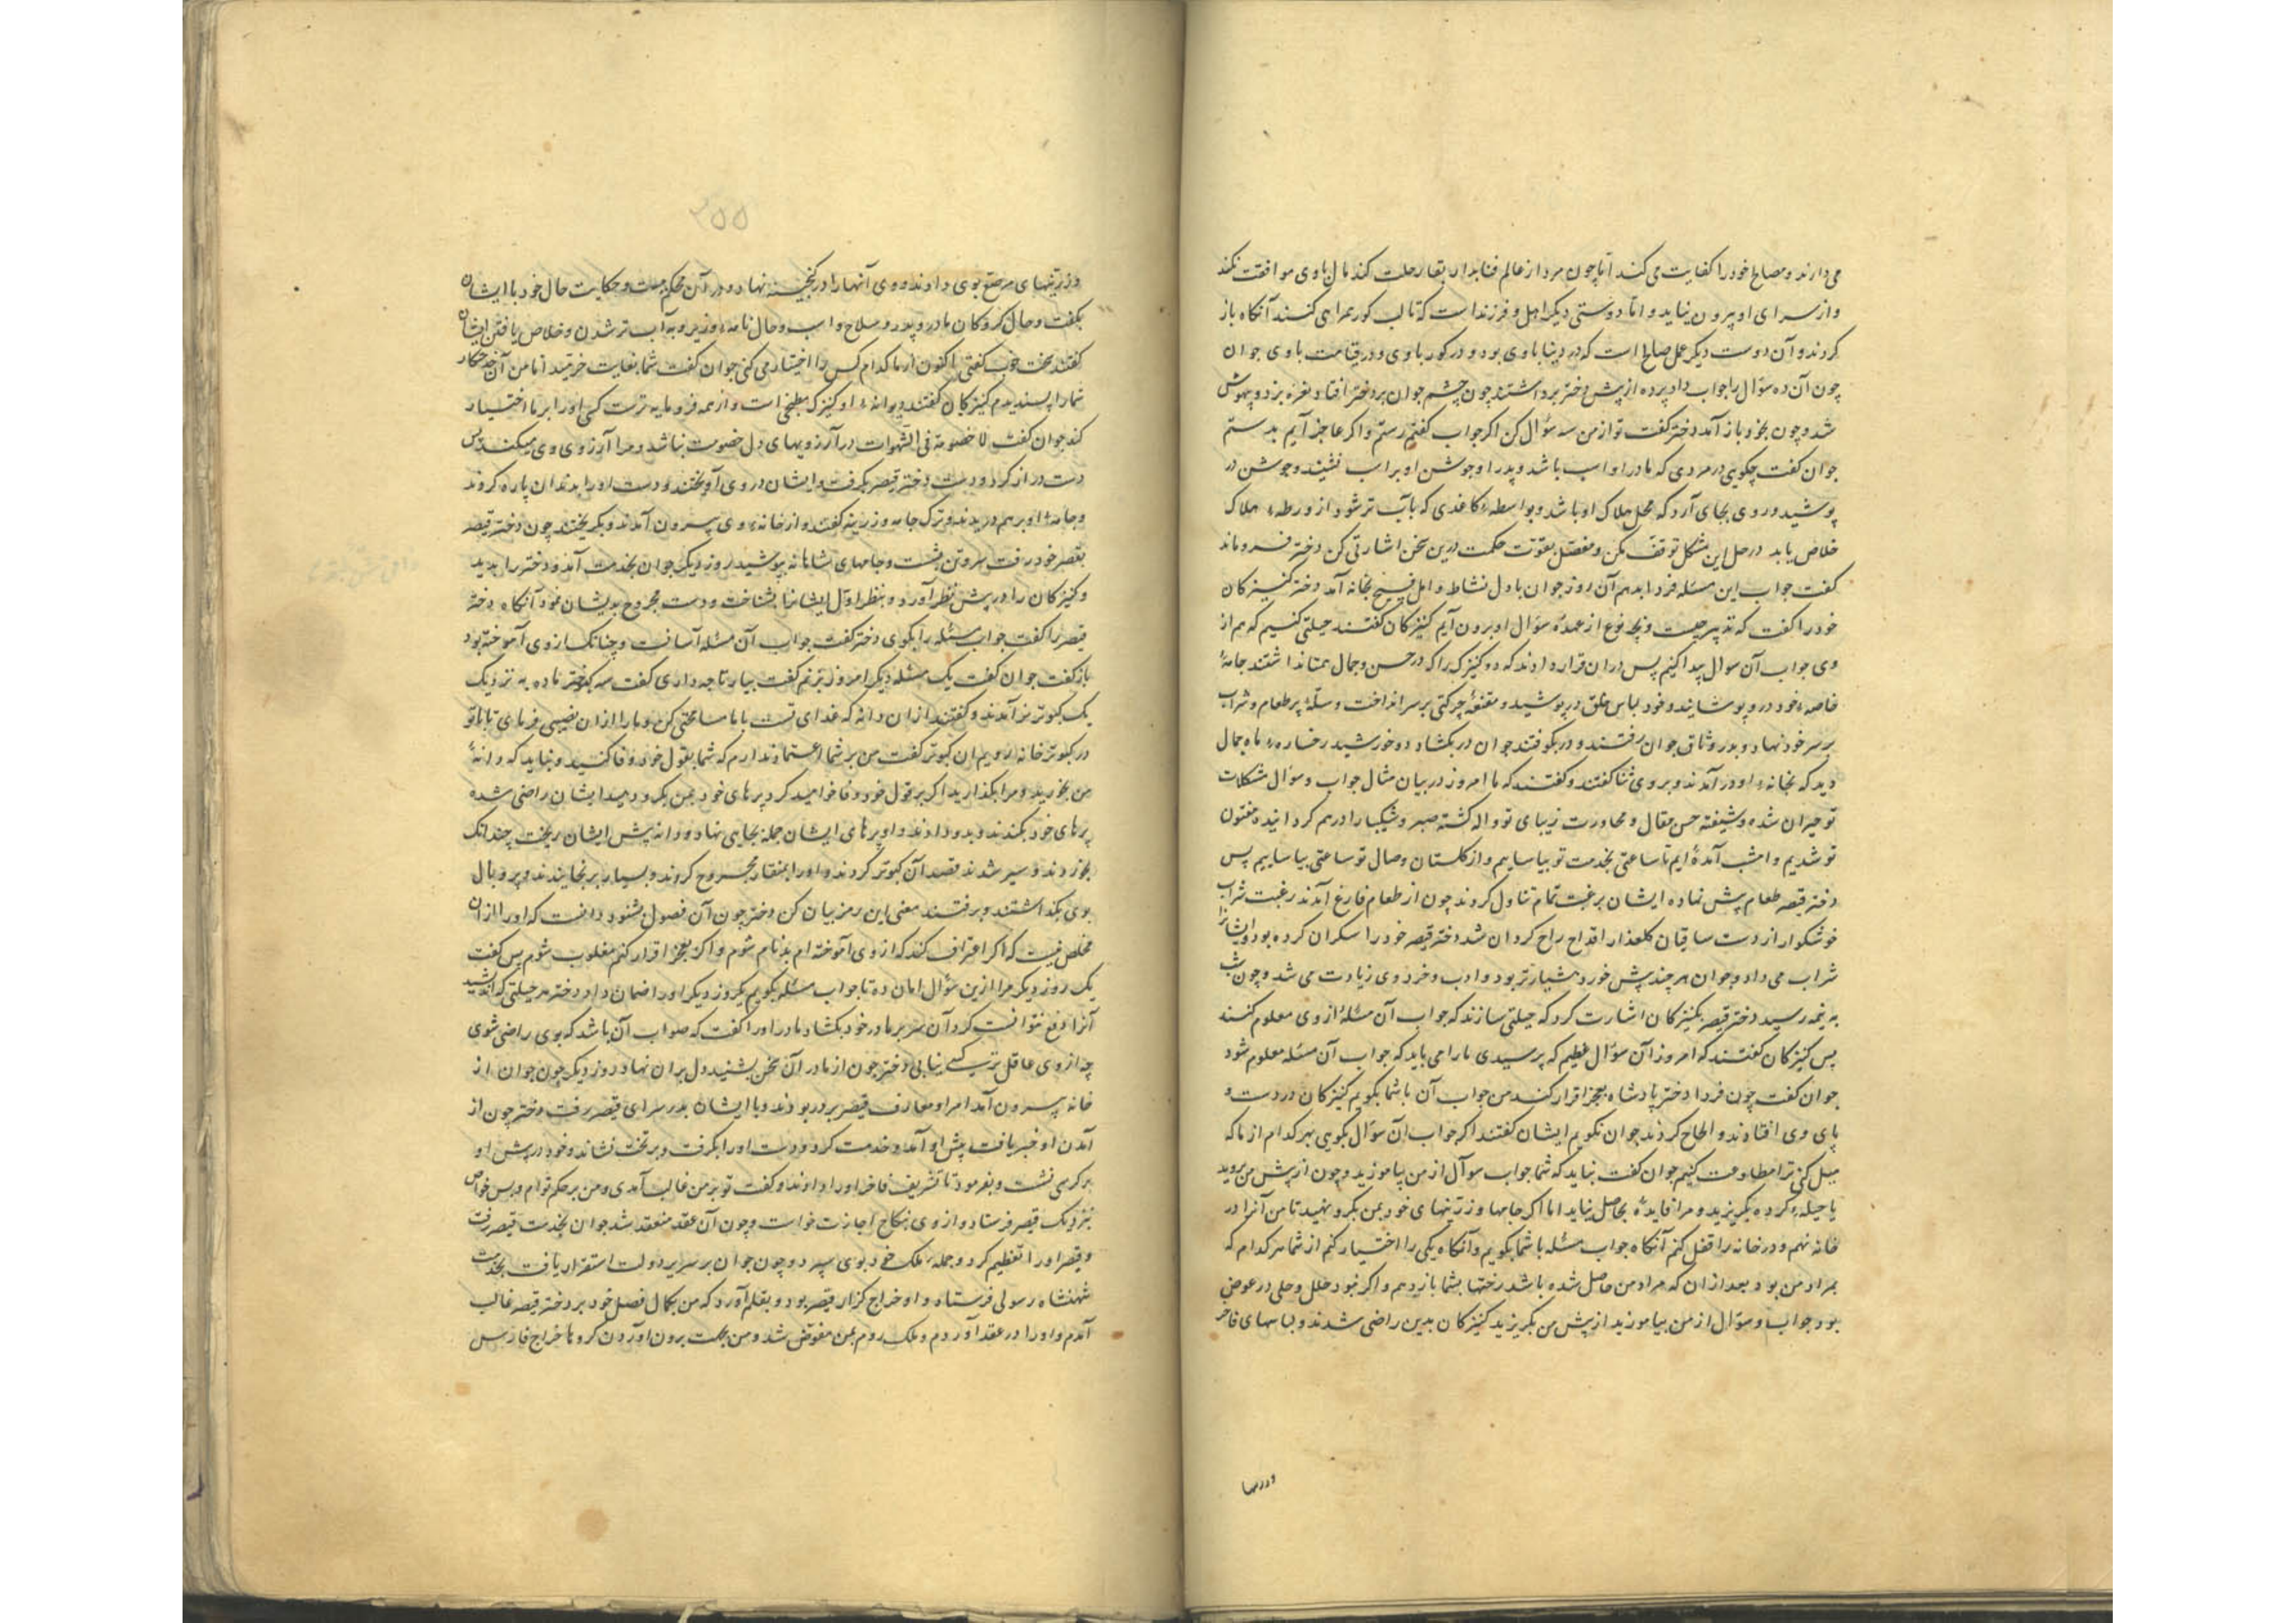 می‌دارند و مصالح خود را کفایت می‌کنند اما چون مرد از عالم فنا بدار بقا رحلت کند مال با وی موافقت نکند
و از سرای او بیرون نیاید و اما دوستی دیگر اهل و فرزند است که تا لب گور همراهی کنند آنگاه باز
گردند و آن دوست دیگر عمل صالح است که در دنیا با وی بود و در گور با وی و در قیامت با وی جوان
چون آن ده سؤال را جواب داد پرده از پیش دختر برداشتند چون چشم جوان بر دختر افتاد نعره بزد و بیهوش
شد و چون بخود باز آمد دختر گفت تو از من سه سؤال کن اگر جواب گفتم رستم و اگر عاجز آیم بدستم
جوان گفت چگویی در مردی که مادر او اسب باشد و پدر او جوشن او بر اسب نشیند و جوشن در
پوشید و روی بجای آرد که محل هلاک او باشد و بواسطهٔ کاغدی که بآب تر شود از ورطهٔ هلاک
خلاص یابد در حل این مشکل توقف مکن و مفصل بقوت حکمت درین سخن اشارتی کن دختر فروماند
گفت جواب این مسئله فردا بدهم آن روز جوان با دل نشاط و امل فسیح بخانه آمد دختر کنیزکان
خود را گفت که تدبیر چیست و بچه نوع از عهدهٔ سؤال او برون آیم کنیزکان گفتند حیلتی کنیم که هم از
وی جواب آن سوال پیدا کنیم پس دران قرار دادند که دو کنیزک را که در حسن و جمال همتا نداشتند جامهٔ
خاصهٔ خود در و پوشانید و خود لباس خلق در پوشید و مقنعهٔ چرکتی بر سر انداخت و سلهٔ پر طعام و شراب
بر سر خود نهاد و بدر وثاق جوان رفتند و در بکوفتند جوان در بگشاد دو خورشید رخسارهٔ ماه جمال
دید که بخانهٔ او در آمدند و بر وی ثنا گفتند و گفتند که ما امروز در بیان مثال جواب و سؤال مشکلات
تو حیران شده و شیفته حسن مقال و محاورت زیبای تو واله گشته صبر و شکیبا را در هم گردانیده مفتون
تو شدیم و امشب آمده‌ایم تا ساعتی بخدمت تو بیاساییم و از گلستان وصال تو ساعتی بیاساییم پس
دختر قیصر طعام پیش نهاده ایشان برغبت تمام تناول کردند چون از طعام فارغ آمدند رغبت شراب
خوشگوار از دست ساقیان گلعذار اقداح راح گردان شد دختر قیصر خود را سکران کرده بود و ایشانرا
شراب می‌داد و جوان هر چند بیش خورد هشیارتر بود و ادب و خرد وی زیادت می‌شد و چون شب
به نیمه رسید دختر قیصر بکنیزکان اشارت کرد که حیلتی سازند که جواب آن مسئله از وی معلوم کنند
پس کنیزکان گفتند که امروز آن سؤال عظیم که پرسیدی ما را می‌باید که جواب آن مسئله معلوم شود
جوان گفت چون فردا دختر پادشاه بعجز اقرار کند من جواب آن با شما بگویم کنیزکان در دست و
پای وی افتادند و الحاح کردند جوان نگویم ایشان گفتند اگر جواب آن سؤال بگویی بهر کدام از ما که
میل کنی ترا مطاوعت کنیم جوان گفت نباید که شما جواب سوآل از من بیاموزید و چون از پیش من بروید
یا حیله کرده بگریزید و مرا فایدهٔ بحاصل نیاید اما اگر جامها و زرینهای خود بمن بگرو نهید تا من آنرا در
خانه نهم و در خانه را قفل کنم آنگاه جواب مسئله با شما بگویم و آنگاه یکی را اختیار کنم از شما هر کدام که
بمراد من بود بعد از آن که مراد من حاصل شده باشد رختها بشما باز دهم و اگر نبود حلل و حلی در عوض
بود جواب و سؤال از من بیاموزید از پیش من بگریزید کنیزکان بدین راضی شدند و لباسهای فاخر
۲۵۵
و زرینهای مرصع بوی دادند و وی آنها را در گنجینه نهاد و در آن محکم ببست و حکایت حال خود با ایشان
بگفت و حال گروکان مادر و پدر و سلاح و اسب و حال نامهٔ وزیر و به آب تر شدن و خلاص یافتن ایشان
گفتند سخت خوب گفتی اکنون از ما کدام کس را اختیار می‌کنی جوان گفت شما بغایت خرمید اما من آن خدمتکار
شما را پسندیدم کنیزکان گفتند دیوانهٔ او کنیزک مطبخی است و از همه فرومایه‌ترست کسی او را بر ما اختیار
کند جوان گفت لا خصومة فی الشهوات در آرزویهای دل خصومت نباشد و مرا آرزوی وی میکند پس
دست دراز کرد و دست دختر قیصر بگرفت و ایشان در وی آویختند و دست او را بدندان پاره کردند
و جامهٔ او بر هم دریدند و ترک جامه و زرینه گفتند و از خانهٔ وی بیرون آمدند و بگریختند چون دختر قیصر
بقصر خود رفت سر و تن بشست و جامهای شاهانه بپوشید روز دیگر جوان بخدمت آمد و دختر را بدید
و کنیزکان را در پیش نظر آورد و بنظر اول ایشانرا بشناخت و دست مجروح بدیشان نمود آنگاه دختر
قیصر را گفت جواب مسئله را بگوی دختر گفت جواب آن مسئله آسانست و چنانک از وی آموخته بود
باز گفت جوان گفت یک مسئله دیگر امروز بپرسم گفت بیار تا چه داری گفت سه کبوتر ماده به نزدیک
یک کبوتر نر آمدند و گفتند ازان دانه که غدای تست با ما سامحتی کن و ما را ازان نصیبی فرمای تا با تو
در کبوتر خانه رویم ان کبوتر گفت من بر شما اعتماد ندارم که شما بقول خود وفا کنید و نباید که دانهٔ
من بخورید و مرا بگذارید اگر بر قول خود وفا خواهید کرد پرهای خود بمن بگرو دهید ایشان راضی شده
پرهای خود بکندند و بدو دادند و او پرهای ایشان جمله بجایی نهاد و دانه پیش ایشان ریخت چندانک
بخوردند و سیر شدند قصد آن کبوتر کردند و او را بمنقار مجروح کردند و بسیار برنجانیدند و پر و بال
بوی بگذاشتند و برفتند معنی این رمز بیان کن دختر چون آن فصول بشنود دانست که او را ازان
مخلص نیست که اگر اعتراف کند که از وی آموخته‌ام بدنام شوم و اگر بعجز اقرار کنم مغلوب شوم پس گفت
یک روز دیگر مرا ازین سؤال امان ده تا جواب مسئله بگویم یکروز دیگر او را ضمان داد و دختر هر حیلتی که اندیشید
آنرا دفع نتوانست کرد آن سر بر مادر خود بگشاد مادر او را گفت که صواب آن باشد که بوی راضی شوی
چه از وی عاقل‌تر کسی نیابی دختر چون از مادر آن سخن بشنید دل بران نهاد و روز دیگر چون جوان از
خانه بیرون آمد امرا و معارف قیصر بر در بودند و با ایشان بدر سرای قیصر رفت دختر چون از
آمدن او خبر یافت پیش او آمد و خدمت کرد و دست او را بگرفت و بر تخت نشاند و خود در پیش او
بر کرسی نشست و بفرمود تا تشریف فاخر او را دادند و گفت تو بر من غالب آمدی و من بر حکم توام و پس خواص
بنزدیک قیصر فرستاد و از وی بنکاح اجازت خواست و چون آن عقد منعقد شد جوان بخدمت قیصر رفت
و قیصر او را تعظیم کرد و جملهٔ ملک خود بوی سپرد و چون جوان بر سریر دولت استقرار یافت بخدمت
شهنشاه رسولی فرستاد و او خراج گزار قیصر بود و بقلم آورد که من بکمال فضل خود بر دختر قیصر غالب
آمدم و او را در عقد آوردم و ملک روم بمن مفوض شد و من بجهت برون آوردن گروها خراج فارس